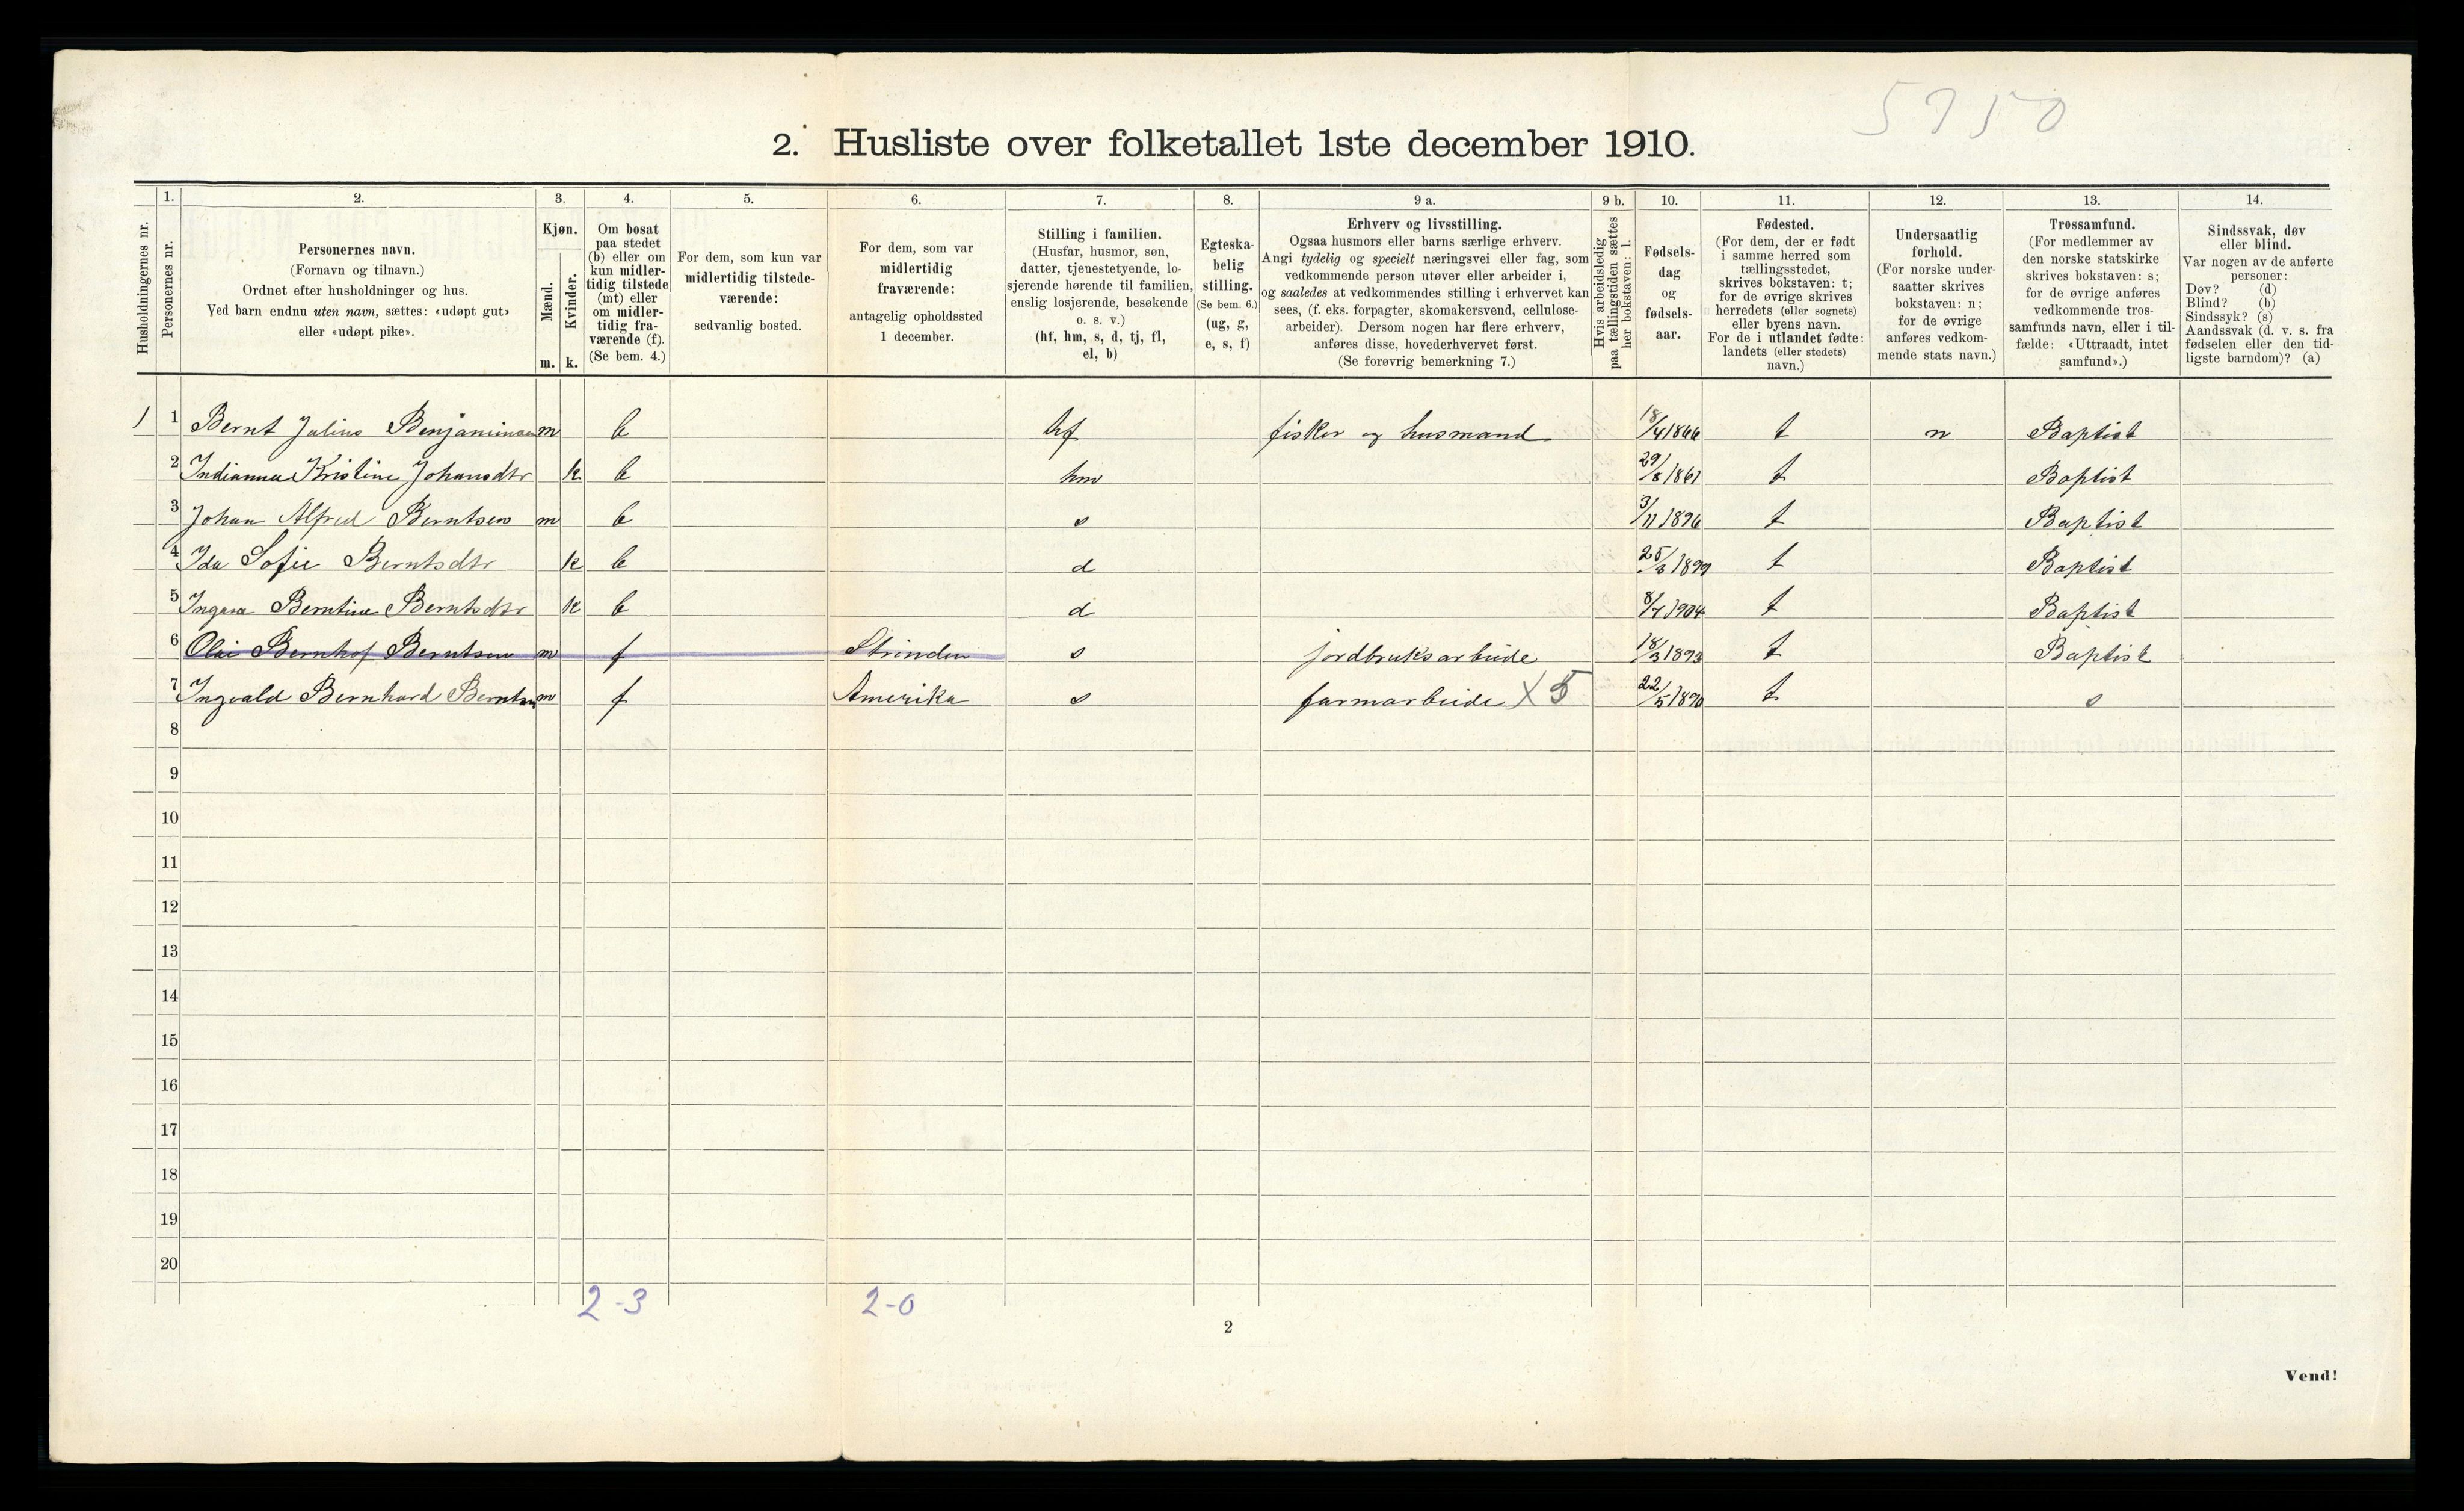 5950
2. Husliste over folketallet 1ste december 1910.
Husholdningernes nr.
1.
Personernes nr.
2.
Personernes navn.
(Fornavn og tilnavn.)
Ordnet efter husholdninger og hus.
Ved barn endnu uten navn, sættes: «udøpt gut»
eller «udøpt pike».
3.
Kjøn.
Mænd.
m.
Kvinder.
k.
4.
Om bosat
paa stedet
(b) eller om
kun midler-
tidig tilstede
(mt) eller
om midler-
tidig fra-
værende (f).
(Se bem. 4.)
5.
For dem, som kun var
midlertidig tilstede-
værende:
sedvanlig bosted.
6.
For dem, som var
midlertidig
fraværende:
antagelig opholdssted
1 december.
7.
Stilling i familien.
(Husfar, husmor, søn,
datter, tjenestetyende, lo-
sjerende hørende til familien,
enslig losjerende, besøkende
o. s. v.)
(hf, hm, s, d, tj, fl,
el, b)
8.
Egteska-
belig
stilling.
(Se bem. 6.)
(ug, g,
e, s, f)
9 a.
Erhverv og livsstilling.
Ogsaa husmors eller barns særlige erhverv.
Angi tydelig og specielt næringsvei eller fag, som
vedkommende person utøver eller arbeider i,
og saaledes at vedkommendes stilling i erhvervet kan
sees, (f. eks. forpagter, skomakersvend, cellulose-
arbeider). Dersom nogen har flere erhverv,
anføres disse, hovederhvervet først.
(Se forøvrig bemerkning 7.)
9 b.
Hvis arbeidsledig
paa tællingstiden sættes
her bokstaven: l.
10.
Fødsels-
dag
og
fødsels-
aar.
11.
Fødested.
(For dem, der er født
i samme herred som
tællingsstedet,
skrives bokstaven: t;
for de øvrige skrives
herredets (eller sognets)
eller byens navn.
For de i utlandet fødte:
landets (eller stedets)
navn.)
12.
Undersaatlig
forhold.
(For norske under-
saatter skrives
bokstaven: n;
for de øvrige
anføres vedkom-
mende stats navn.)
13.
Trossamfund.
(For medlemmer av
den norske statskirke
skrives bokstaven: s;
for de øvrige anføres
vedkommende tros-
samfunds navn, eller i til-
fælde: «Uttraadt, intet
samfund».)
14.
Sindssvak, døv
eller blind.
Var nogen av de anførte
personer:
Døv? (d)
Blind? (b)
Sindssyk? (s)
Aandssvak (d. v. s. fra
fødselen eller den tid-
ligste barndom)? (a)
1) 1 Bernt Julius Benjaminsen m b hf fisker og husmand 18/4 1866 t n Baptist
2 Indianna Kristine Johansdtr k b hm 29/8 1861 t Baptist
3 Johan Alfred Berntsen m b s 3/11 1896 t Baptist
4 Ida Sofie Berntsdtr k b d 25/3 1899 t Baptist
5 Ingara Berntine Berntsdtr k b d 8/7 1904 t Baptist
6 Olai Bernhof Berntsen m f Strinden s jordbruksarbeide 18/3 1893 t Baptist
7 Ingvald Bernhard Berntsen m f Amerika s farmarbeide X 5 22/5 1890 t s
8
9
10
11
12
13
14
15
16
17
18
19
20
2-3 2-0
2
Vend!